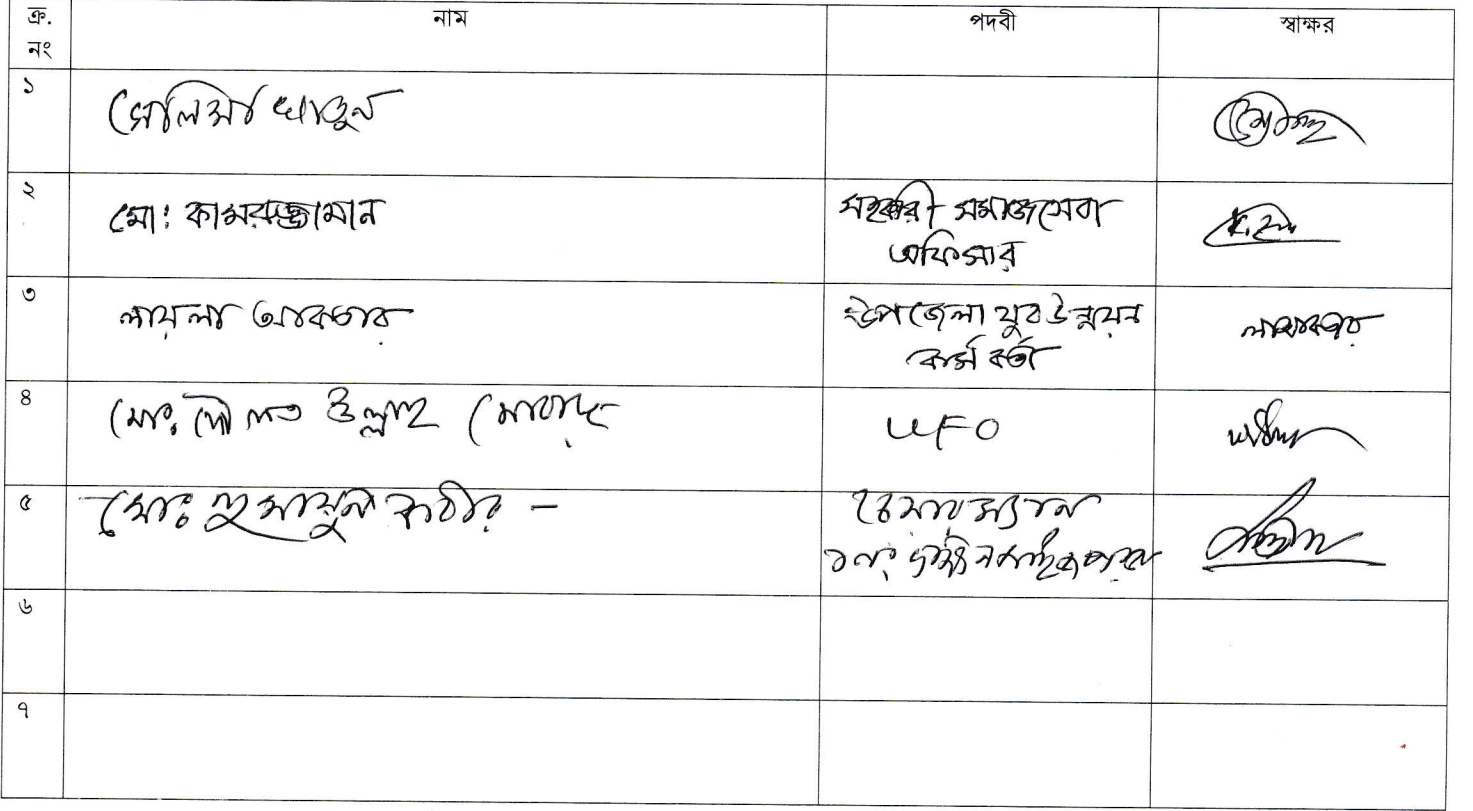 ক্র. নং নাম পদবী স্বাক্ষর
১ সেলিমা খাতুন
২ মো: কামরুজ্জামান সহকারী সমাজসেবা
অফিসার
৩ লায়লা আকতার উপজেলা যুব উন্নয়ন
কর্মকর্তা
৪ মোঃ দৌলত উল্লাহ UFO
৫ মোঃ হুমায়ুন কবীর - চেয়ারম্যান
৬
৭